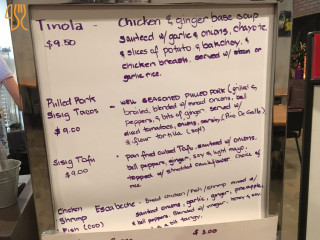 Tinola - Chicken & ginger base soup
$9.50 sauteed w/ garlic & onions, chayote
& slices of potato & bokchoy, &
chicken breasts. served w/ steam or
garlic rice.
Pulled Pork - well seasoned pulled pork (grilled &
Sisig Tacos broiled, blended w/ mixed onions, bell
$9.00 peppers, & bits of ginger. served w/
diced tomatoes, onions, (Pico De Gallo)
& flour tortilla (soft)
Sisig Tofu - pan fried cubed Tofu, sauteed w/ onions,
$9.00 bell peppers, ginger, soy & light mayo.
topped w/ shredded choice of
rice.
Chicken Escabeche - Bread chicken/fish/shrimp mixed w/
Shrimp sauteed onions, garlic, ginger, pineapple,
Fish (COD) & bell peppers. Blended w/ vinegar, honey & soy
$3.00